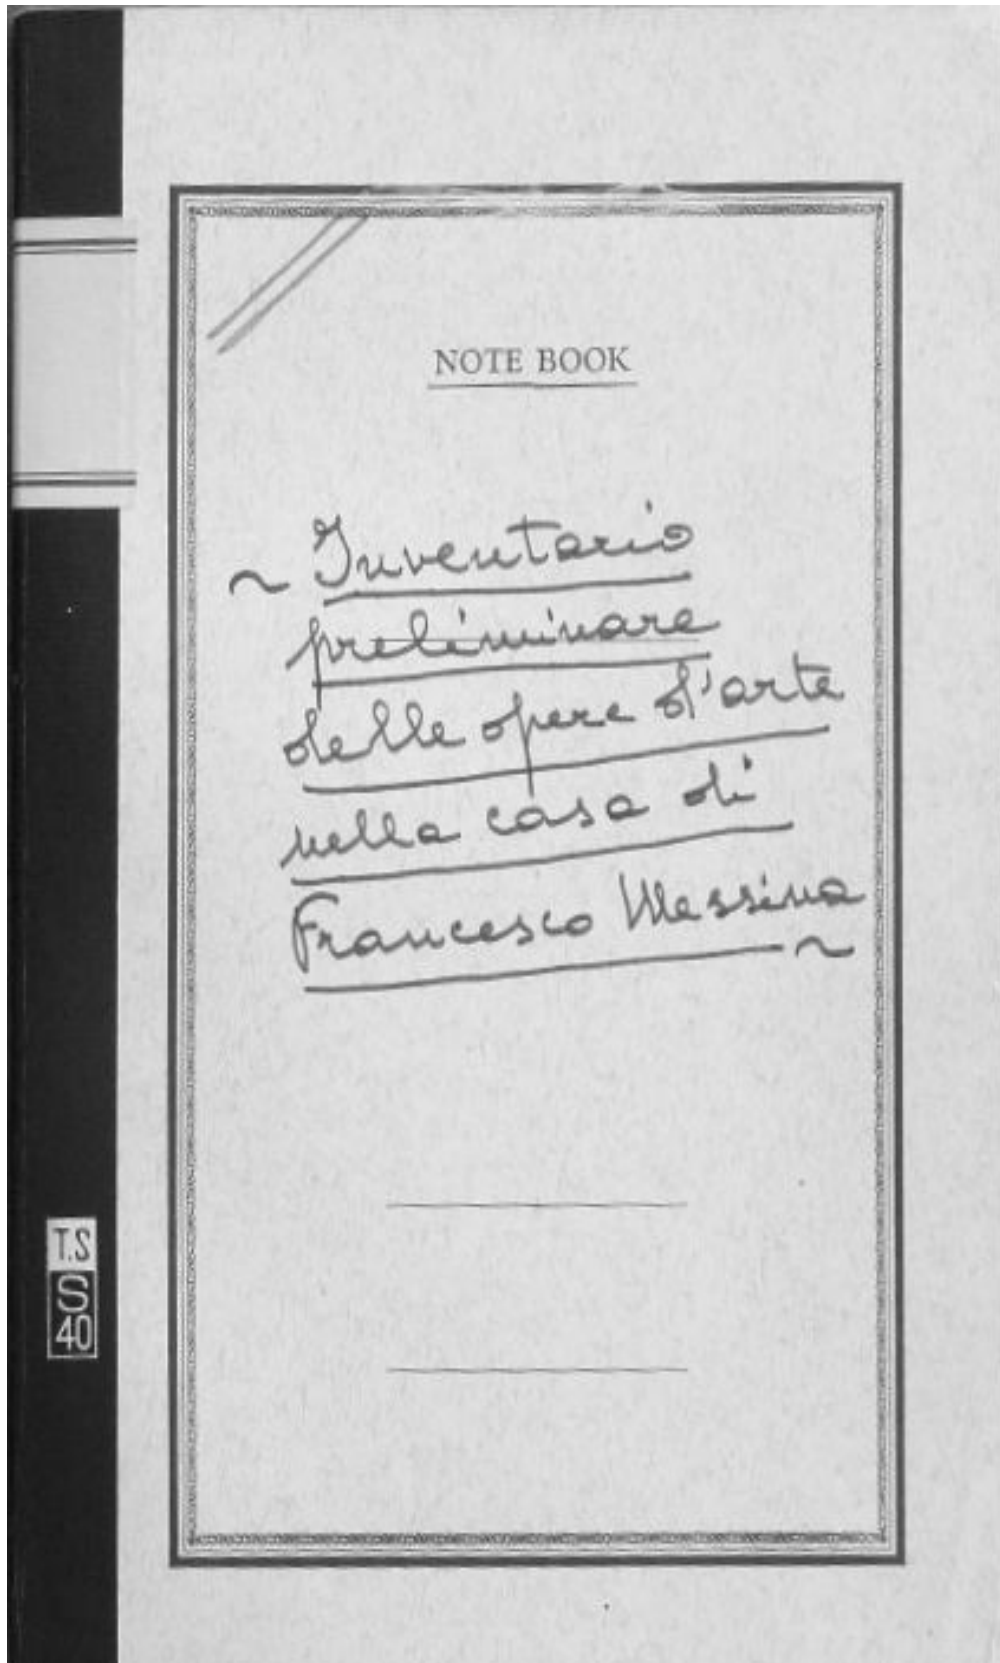 NOTE BOOK
~ Inventario
preliminare
delle opere d'arte
nella casa di
Francesco Messina ~
T.S
S
40